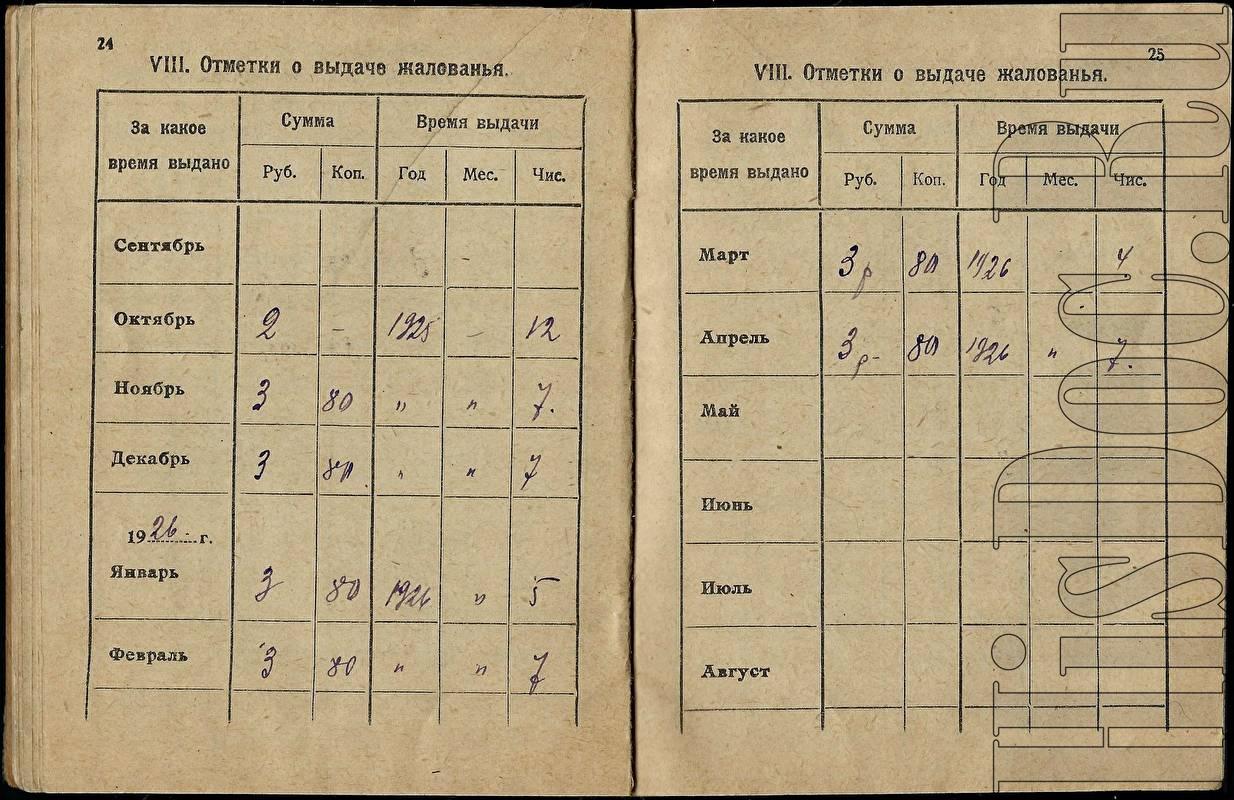 24
VIII. Отметки о выдаче жалованья.
За какое время выдано Сумма Время выдачи
Руб. Коп. Год Мес. Чис.
Сентябрь
Октябрь 2 – 1925 – 12
Ноябрь 3 80 " " 7.
Декабрь 3 80 " " 7
1926 г.
Январь 3 80 1926 " 5
Февраль 3 80 " " 7
25
VIII. Отметки о выдаче жалованья.
За какое время выдано Сумма Время выдачи
Руб. Коп. Год Мес. Чис.
Март 3 р 80 1926 4
Апрель 3 р- 80 1926 " 7.
Май
Июнь
Июль
Август
HisDoc.ru